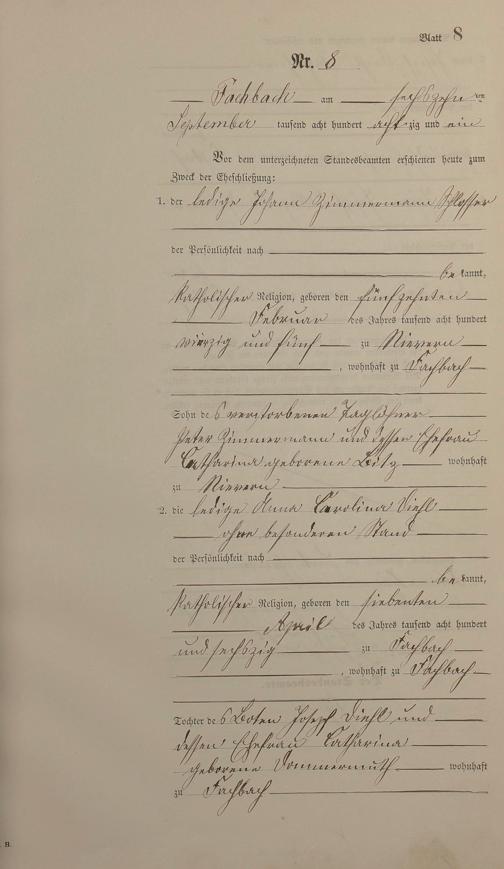 Blatt 8
Nr. 8
Fachbach am sechszehn ten
September tausend acht hundert achtzig und ein
Vor dem unterzeichneten Standesbeamten erschienen heute zum
Zweck der Eheschließung:
1. der ledige Johann Zimmermann Schlosser
der Persönlichkeit nach
bekannt,
katholischer Religion, geboren den fünfzehnten
Februar des Jahres tausend acht hundert
vierzig und fünf zu Nievern
, wohnhaft zu Fachbach
Sohn des verstorbenen Taglöhner
Peter Zimmermann und dessen Ehefrau
Catharina geborene wohnhaft
zu Nievern
2. die ledige Anna Carolina Diehl
ohne besonderen Stand
der Persönlichkeit nach
bekannt,
katholischer Religion, geboren den siebenten
April des Jahres tausend acht hundert
und sechszig zu Fachbach
, wohnhaft zu Fachbach
Tochter des Boten Joseph Diehl und
dessen Ehefrau Catharina
geborene Dommermuth wohnhaft
zu Fachbach